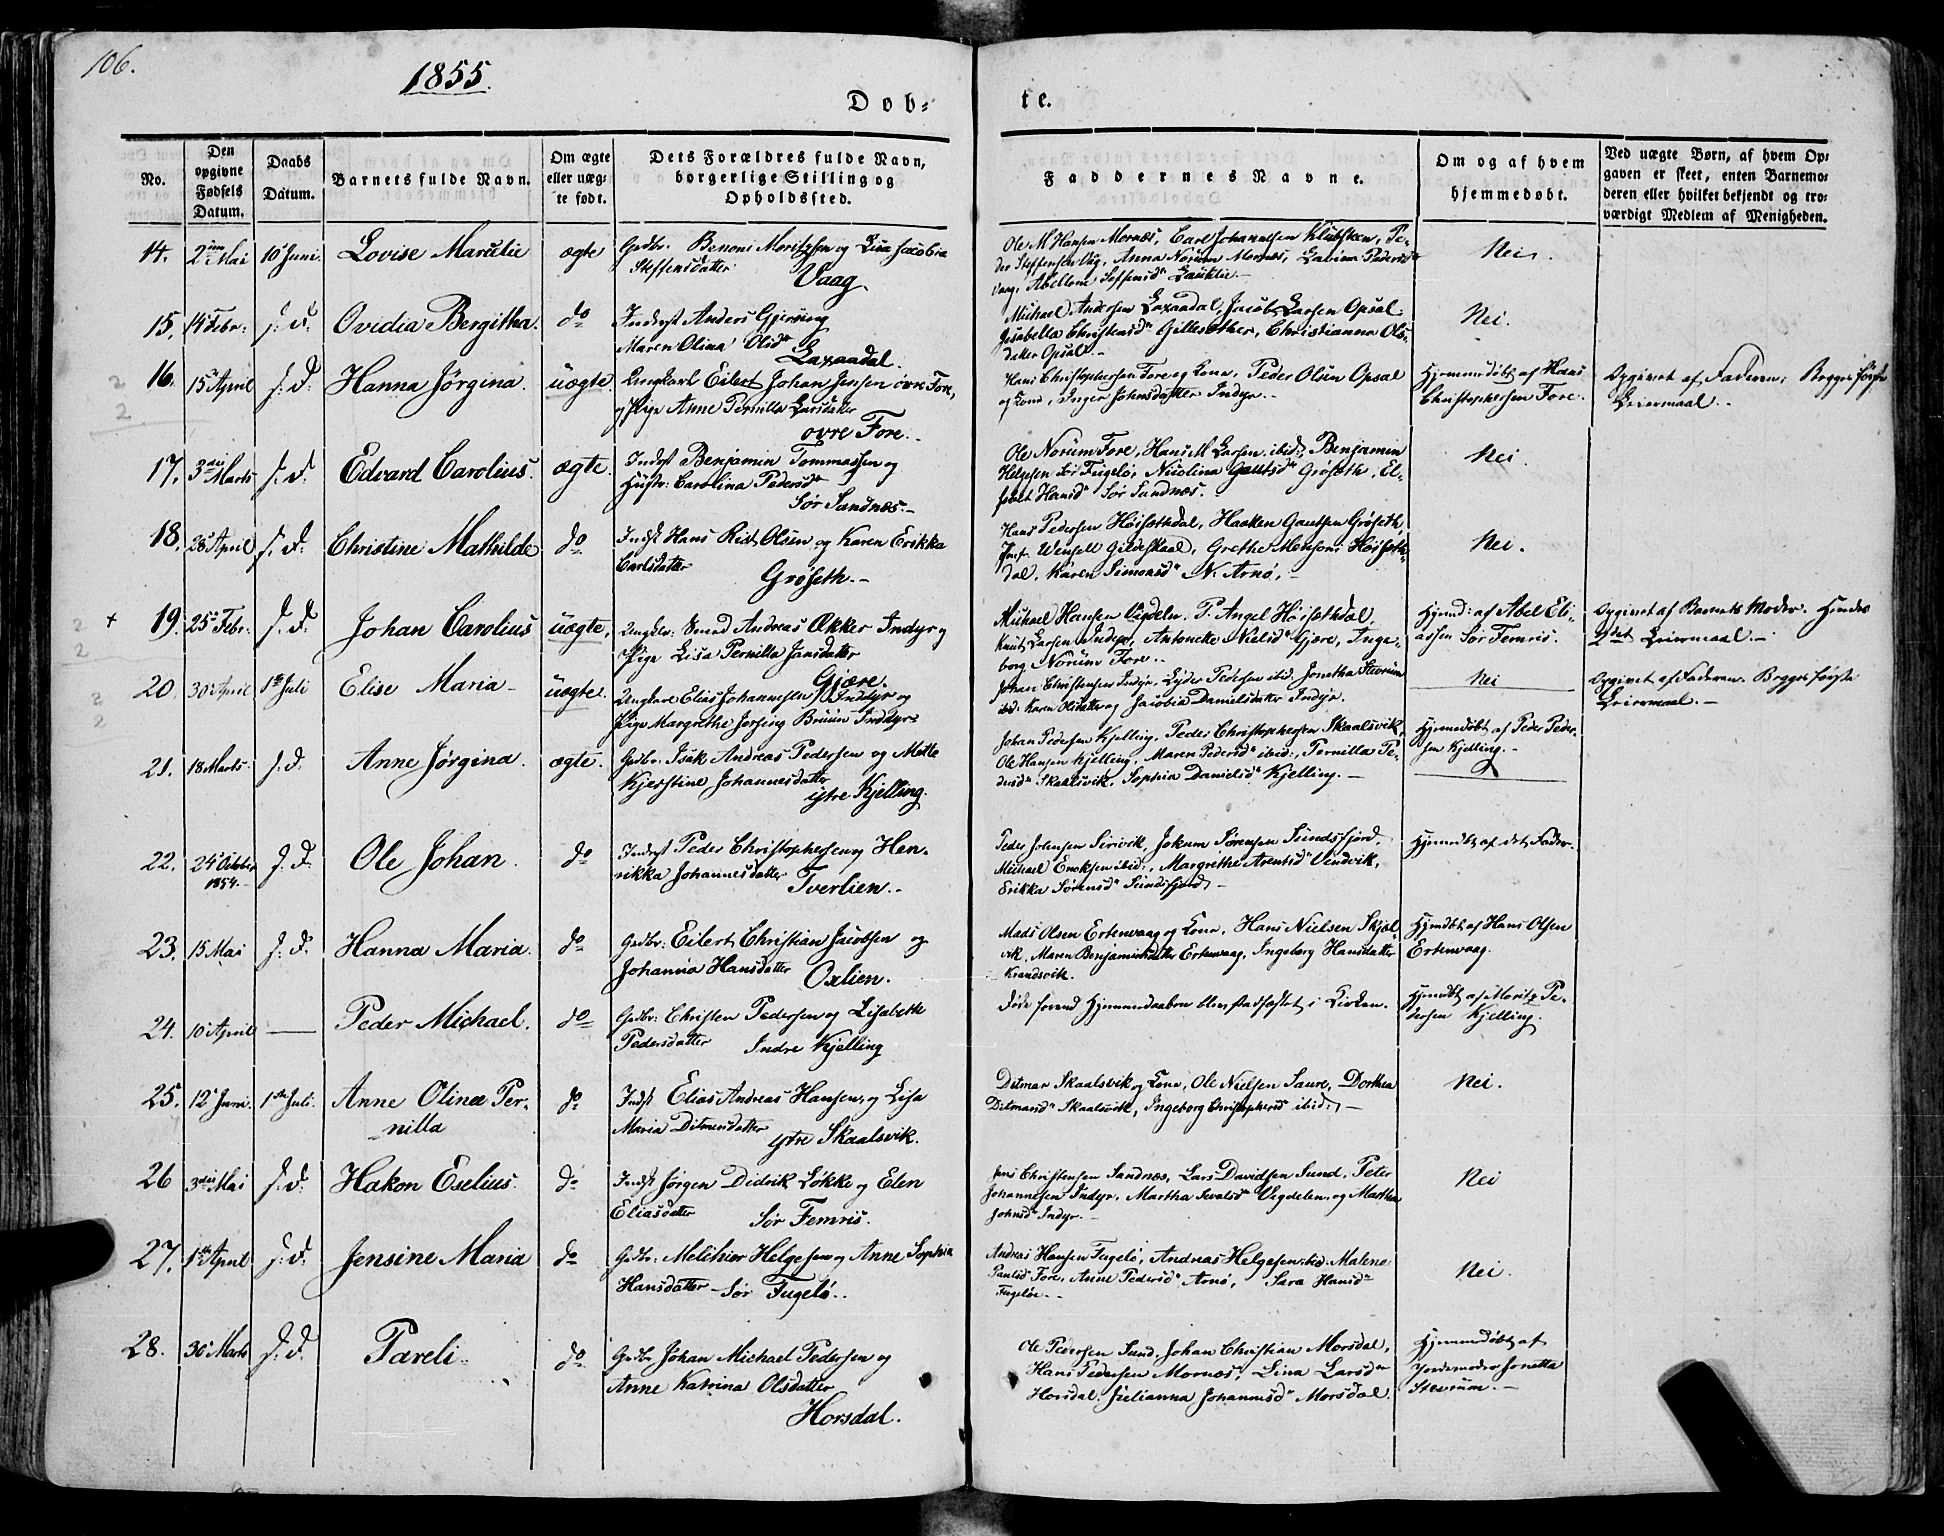 106.
1855.
Døb-
te.
No.
Den opgivne Fødsels Datum.
Daabs Datum.
Barnets fulde Navn.
Om ægte eller uæg- te født.
Dets Forældres fulde Navn, borgerlige Stilling og Opholdssted.
Faddernes Navne.
Om og af hvem hjemmedøbt.
Ved uægte Børn, af hvem Op- gaven er skeet, enten Barnemo- deren eller hvilket bekjendt og tro- værdigt Medlem af Menigheden.
14. 2den Mai 10 Juni Lovise Marcelie ægte Gdbr. Benoni Moritzsen og Lisa Jacobia
Steffensdatter
Vaag.
Ole M Hansen Mornæs, Carl Johannessen Pe-
der Steffensen Vaag, Anna Norum Mornæs, Lavina Pedersd
Vaag, Abellone
Nei.
15. 14 Febr. s. D. Ovidia Bergitha. do Inderst Anders Gjersing
Maren Olina Olsdr
Laxaadal.
Michael Andersen Laxaadal, Jacob Larsen Opsal.
Isabella Christensdr Christianna Ols-
datter Opsal.
Nei.
16. 15 April s. D. Hanna Jørgina. uægte. Ungkarl Eilert Johan Jensen øvre Fore,
og Pige Anne Pernilla Larsdatter
øvre Fore.
Hans Christophersen Fore og Kone, Peder Olsen Opsal
og Kone, Inger Johnsdatter Indyr.
Hjemmedøbt af Hans
Christophersen Fore.
Opgivet af Faderen; Begges første
Leiermaal.
17. 3die Marts s. D. Edvard Carolius. ægte. Inderst Benjamin Tommassen og
Hustr: Carolina Pedersdr
Sør Sandnæs.
Ole Norum Fore, Hans M Larsen ibid:, Benjamin
Helgesen Fugelø, Nicolina Gautsdr Grøseth, El-
Hansdr Sør Sandnæs.
Nei.
18. 28 April s. D. Christine Mathilde do Indst Hans Rist Olsen og Karen Erikka
Carlsdatter
Grøseth.
Hans Pedersen Høisethdal, Haaken Gautsen Grøseth,
Jmf. Wensell Gildeskaal, Grethe Monsen Høiseth-
dal, Karen Simonsdr N. Arnø,
Nei.
19. 25 Febr. s. D. Johan Carolius uægte, Ungkr. Smed Andreas Økker Indyr og
Pige Lisa Pernilla Jansdatter
Gjære.
Michael Hansen Vigdeln. P. Angel Høisethdal,
Knut Larsen Indyr, Antonette Nielsdr Gjære, Inge-
borg Norum Fore.
Hjemd: af Abel Eli-
assen Sør Femris.
Opgivet af Barnets Moder. Hendes
2det Leiermaal.
20. 30 April 1ste Juli Elise Maria uægte. Ungkarl Elias Johannessen Indyr og
Pige Margrethe Bruun Indyr.
Johan Christensen Indyr, Lyder Pedersen ibid, Jonetha Stevrum
ibid: Karen Olsdatter og Jacobia Danielsdatter Indyr.
Nei
Opgivet af Faderen. Begges første
Leiermaal.
21. 18 Marts s. D. Anne Jørgina. ægte. Gdbr. Isak Andreas Pedersen og Mette
Kjerstine Johannesdatter
ytre Kjelling.
Johan Pedersen Kjelling. Peder Christophersen Skaalsvik,
Ole Hansen Kjelling, Maren Pedersdr ibid:, Pernilla Pe-
dersdr Skaalsvik, Sophia Danielsdr Kjelling.
Hjemmedøbt af Peder Peder-
sen Kjelling.
22. 24 October
1854. s. D. Ole Johan. do Inderst Peder Christophersen og Hen-
rikka Johannesdatter
Tverlien.
Peder Johnsen Jokum Sørensen Sundsfjord,
Michael Enoksen ibid:, Margrethe Arentsdr
Erikka Sørensdr Sundsfjord
Hjemdbt af det Fader.
23. 15 Mai s. D. Hanna Maria. do Gdbr: Eilert Christian Jacobsen og
Johanna Hansdatter
Oxlien.
Mads Olsen Ertenvaag og Kone, Hans Nielsen Skjæl-
vik, Maren Benjaminsdatter Ertenvaag, Ingeborg Hansdatter
Krandsvik.
Hjemdbt af Hans Olsen
Ertenvaag.
24. 10 April — Peder Michael. do Gdbr: Christen Pedersen og Lisabeth
Pedersdatter
Indre Kjelling
Døde forend Hjemmedaaben blev stadfæstet i Kirken.
Hjemdbt af Moritz Pe-
dersen Kjelling.
25. 12 Juni. 1ste Juli. Anne Olina Per-
nilla
do Indst Elias Andreas Hansen, og Lisa
Maria Ditmersdatter
ytre Skaalsvik.
Ditmar Skaalsvik og Kone, Ole Nielsen Saure, Dorthea
Ditmarsdr Skaalsvik, Ingeborg Christophersd ibid:,
Nei.
26 3die Mai s. D. Hakon Eselius. do Indst Jørgen Didrik Løkke og Elen
Eliasdatter
Sør Femris.
Jens Christensen Sandnæs, Lars Davidsen Sund, Peter
Johannesen Indyr, Martha Vigdelen, og Martha
Johnsdr Indyr.
Nei
27. 1ste April s. D. Jensine Maria do Gdbr: Melchior Helgesen og Anne Sophia
Hansdatter – Sør Fugelø.
Andreas Hansen Fugelø, Andreas Helgesen ibid. Malene
Paulsd Fore, Anne Pedersdr Arnø, Sara Hansdr
Fugeløe.
Nei.
28. 30 Marts s. D. Pareli. do Gdbr Johan Michael Pedersen og
Anne Katrina Olsdatter
Horsdal.
Ole Pedersen Sund, Johan Christian Morsdal,
Hans Pedersen Mornæs, Lina Larsdr
Horsdal. Julianna Johannesdr Morsdal.
Hjemmedøbt af
Jordemoder Jonetta
Stevrum.